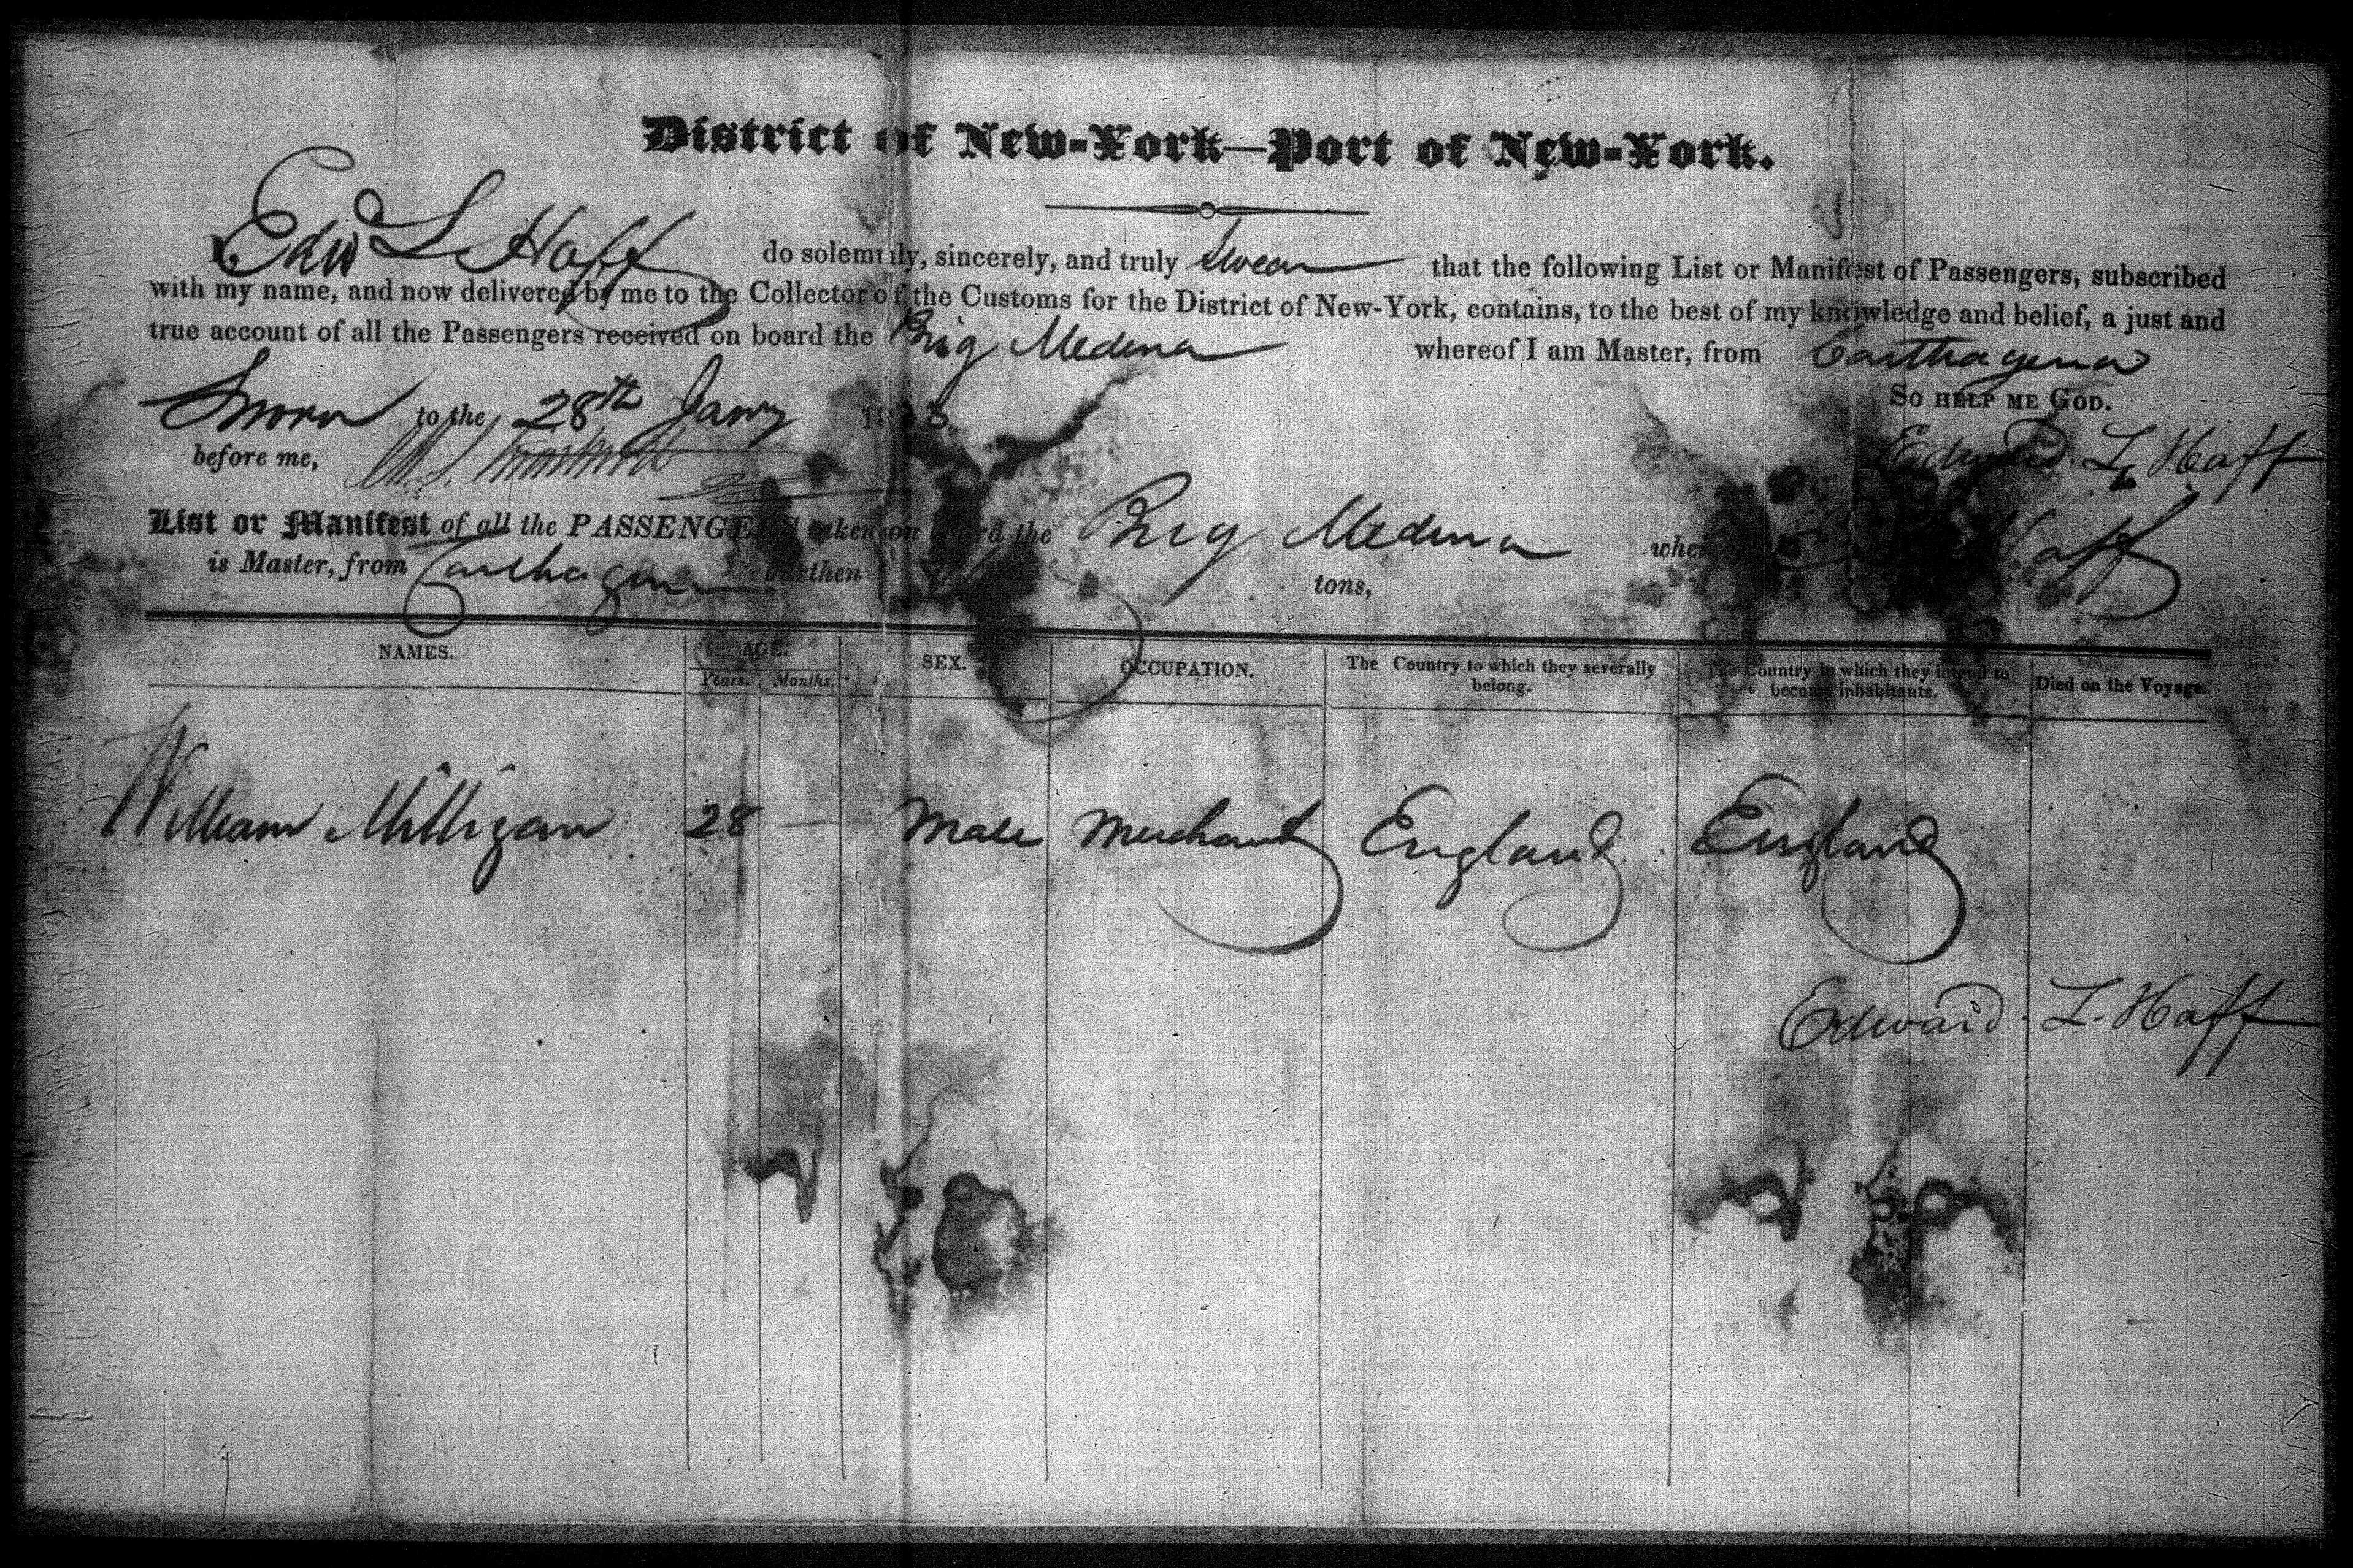 District of New-York—Port of New-York.
I, Edwd L Haff do solemnly, sincerely, and truly swear that the following List or Manifest of Passengers, subscribed
with my name, and now delivered by me to the Collector of the Customs for the District of New-York, contains, to the best of my knowledge and belief, a just and
true account of all the Passengers received on board the Brig Medina whereof I am Master, from Carthagena
So help me God.
Sworn to the 28th Jany
before me,
Edward L Haff
List or Manifest of all the PASSENGERS taken on board the Brig Medina whereof Haff
is Master, from Carthagena burthen tons,
NAMES. AGE. SEX. OCCUPATION. The Country to which they severally belong. The Country in which they intend to become inhabitants. Died on the Voyage.
Years. Months.
William Milligan 28 — Male Merchant England England
Edward L. Haff